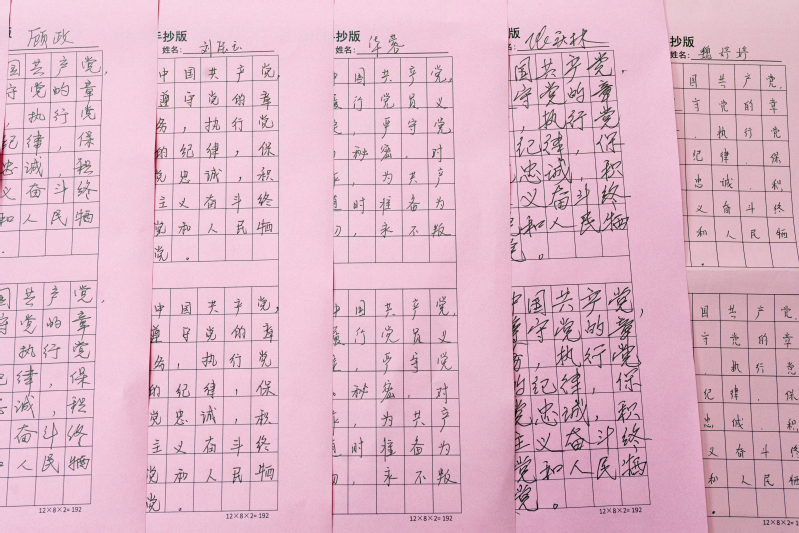 版
顾政
国共产党,
守党的章
执行党
纪律,保
忠诚,积
义奋斗终
和人民牺
。
国共产党,
守党的章
执行党
纪律,保
诚,积
奋斗终
人民牺
手抄版
姓名:
中国共产党,
遵守党的章
务,执行党
的纪律,保
党忠诚,积
主义奋斗终
党和人民牺
党。
中国共产党,
遵守党的章
务,执行党
的纪律,保
党忠诚,积
主义奋斗终
党和人民牺
党。
12×8×2=192
抄版
姓名:
中国共产党,
履行党员义
定,严守党
秘密,对
为共产
随时准备为
切,永不叛
中国共产党,
履行党员义
,严守党
秘密,对
,为共产
随时准备为
,永不叛
12×8×2=192
版
姓名:
国共产党,
守党的章
,执行党
纪律,保
忠诚,积
义奋斗终
和人民牺
党。
中国共产党,
遵守党的章
务,执行党
的纪律,保
党忠诚,积
主义奋斗终
党和人民牺
党。
12×8×2=192
抄版
姓名:魏婷婷
国共产党,
守党的章
,执行党
纪律,保
忠诚,积
义奋斗终
和人民牺
。
国共产党
守党的章
,执行党
纪律,保
忠诚,积
义奋斗终
和人民牺
。
12×8×2=192